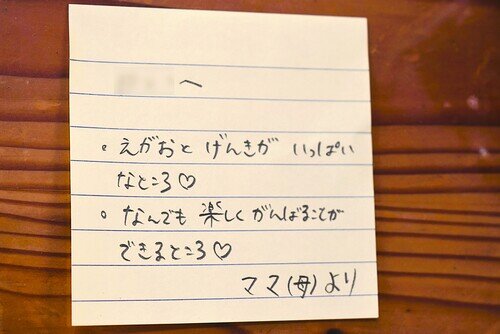 へ
・えがおと げんきが いっぱい
なところ♡
・なんでも 楽しく がんばることが
できるところ♡
ママ(母)より